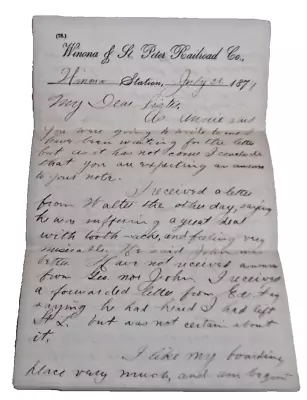 (78.)
Winona & St. Peter Railroad Co.,
Winona Station, July 21 1871
My Dear Sister,
As Annie said
you were going to write to me I
have been waiting for the letter
but as it has not come I conclude
that you are expecting an answer
to your note.
I received a letter
from Walter the other day, saying
he was suffering a great deal
with tooth-ache, and feeling very
miserable. He said John was
better. Have not received answer
from Geo. nor John. I received
a forwarded letter from Ed. Fay
saying he had heard I had left
but was not certain about
it.
I like my boarding
place very much, and am begin